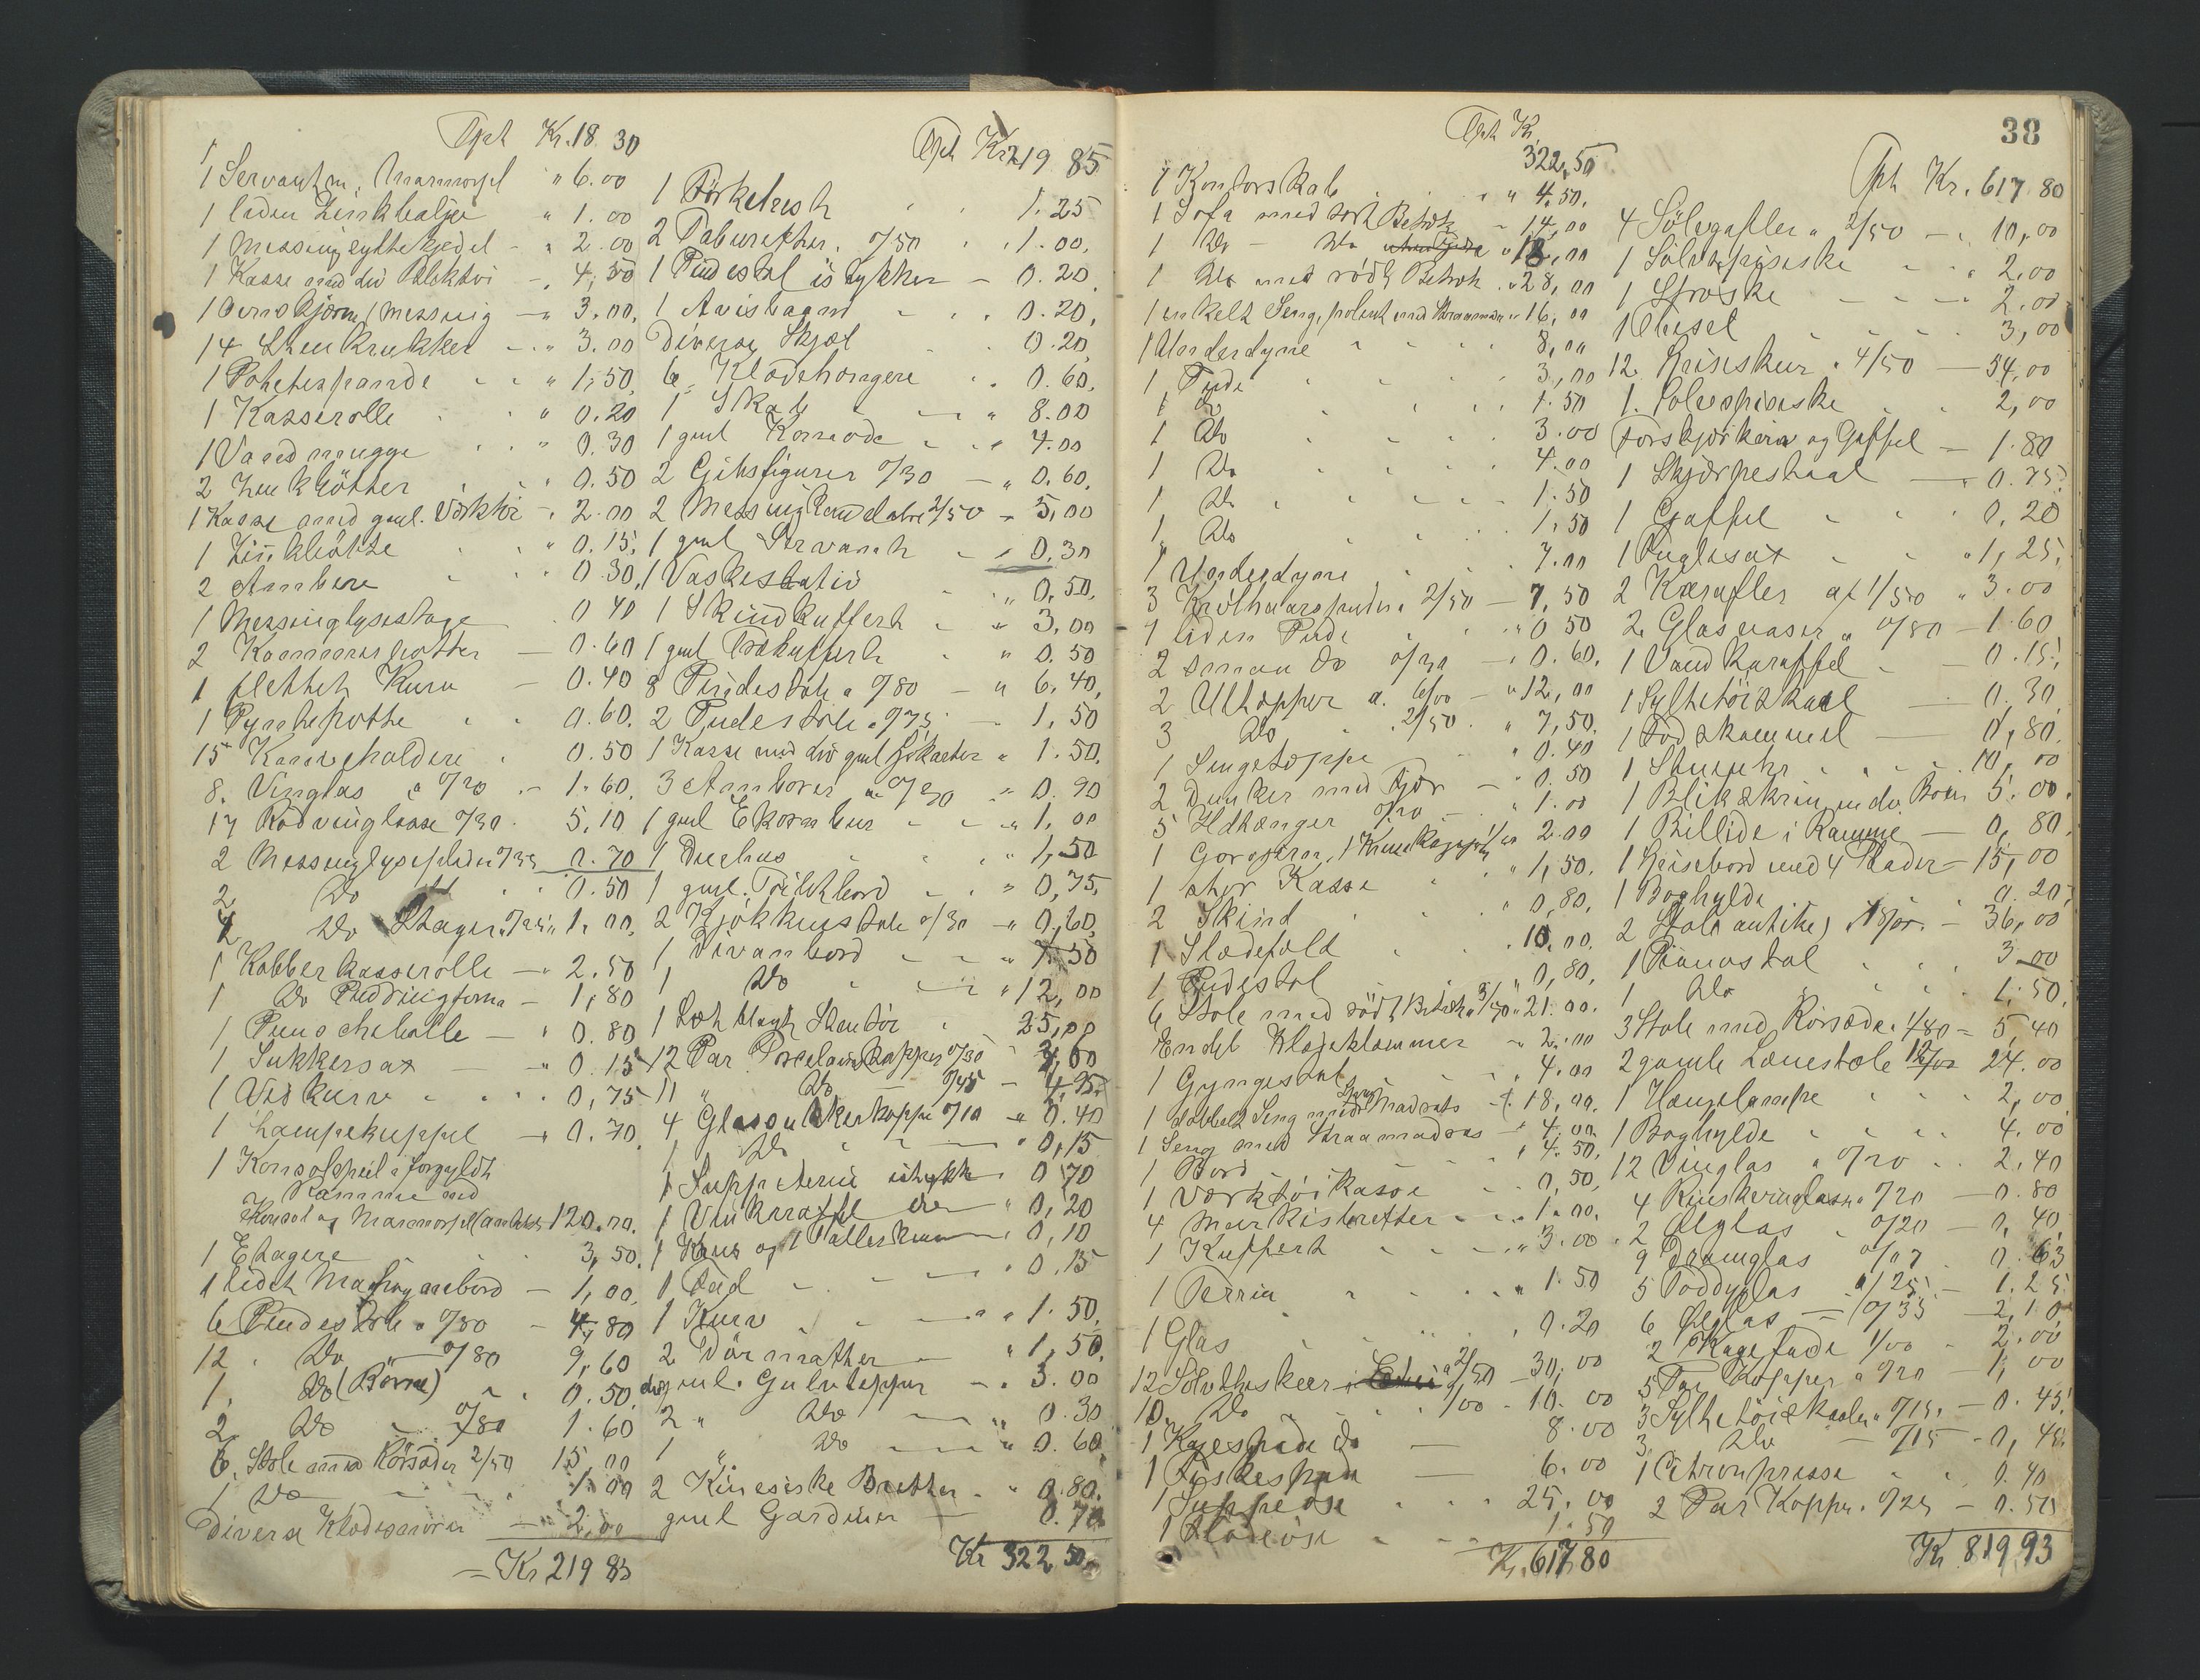 Tpt Kr. 18 30
1 Servant m. Marmorpl " 6.00
1 liden Zinkbalje " 1.00
1 Messing syltekjedel - " 2.00
1 Kasse med div - 4,50
1 (Messing - 3.00,
14 Krukker - " 3.00
1 Potetespande " 1,50
1 Kasserolle " 0.20
1 Vandmugge " 0.30
2 Zinkbötter " 0.50
1 Kasse med gml. Værktöi - 2.00
1 Zinkbötte " 0.15,
2 Ambere " 0.30,
1 Messinglysestage 0 40
2 Kammerpotter - 0.60
1 flettet Kurv - 0.40
1 0.60.
15 holdere 0.50
8. Vinglas a 0/20 - 1.60.
17 Rödvinglasse 0/30. 5,10
2 Messinglyseplader 0/35 0.70
2, Do 0.50
4 Do Stager 0/25 " 1.00,
1 Kobberkasserolle - " 2.50
1 Do Puddingform - 1,80
1 Punschebolle - " 0.80
1 Sukkersax - " 0.15
1 Vedkurv 0,75
1 Lampekuppel - 0.70
1 Konsolspeil i forgyldt
Ramme med
Konsol og Marmorpl (antik) 120.00.
1 Etagere 3,50
1 lidet Mahognibord - 1,00,
6 Pindestole a 0/80 - 4,80
12 " Do " 0/80 9,60
1, Do (Börne) " 0.50
2 Do - 0/80 1.60
6, Stole med Rörsæder 2/50 15,00
1 Do 1.00
Diverse - 2,00
= Kr 219 85
Tpt Kr 219 85
1 Törkelresk 1.25
2 Taburetter. 0/50 " 1.00,
1 Pidestal i stykker - 0.20
1 0.20,
Diverse Skjæl 0.20
6 Klædehængere 0.60,
1 Skab " 8.00
1 gml Komode " 4.00
2 Gibsfigurer 0/30 - " 0.60.
2 Messing Kandelabre 2/50 - 5,00
1 gml Servant 0.30
1 Vaskestativ " 0,50,
1 Skindkuffert " 3,00
1 gml Trækuffert " 0.50
8 Pindestole a 0/80 - " 6,40,
2 Pindestole a 0/75 1,50
1 Kasse med div gml " 1.50.
3 Amborer a 0/30 " 0.90
1 gml " 1,00
1 Duehus " 1,50
1 gml. bord " 0,75,
2 Kjökkenstole 0/30 - " 0,60,
1 Divanbord " 7.50
1 Do " 12,00
1 25,00
12 Par Porcelainskopper 0/30 3,60
11 " Do 0/45 - 4.95
4 Glas sukkerkopper 0/10 " 0.40
1 Do " 0,15
1 Suppeterrin istykker 0 70
1 Vinkaraffel " 0,20
1 Krus og 1 0,10
1 Fad " 0.15
1 Kurv " 1.50,
2 Dörmatter - " 1,50,
div gml. Gulvtepper - " 3.00
2 " Do " 0.30
1 " Do " 0.60
2 Kinesiske Bretter - " 0.80.
gml Gardiner - 0.70
Kr 322 50
Tpt Kr.
322,50
1 Kontorskab " 4.50,
1 Sofa med sort Betræk - 14,00
1 Do - Do " 18,00
1 Do med rödt Betræk " 28,00
1 enkelt Seng, polert med Straamadr " 16,00
1 Underdyne 8,00
1 Pude 3,00
1 Do 1.50
1 Do 3.00
1 Do 4.00
1 Do 1.50
1, Do 1,50
1 Underdyne 7.00
3 Krölhaarspuder a 2/50 - 7,50
1 liden Pude " 0 50
2 smaa Do 0/30 - " 0.60,
2 Ultæpper a. 6/00 - " 12,00
3 Do, 2/50. " 7,50,
1 Sengetæppe " 0.40
2 Dunker med Fjær - " 0.50
5 0/20 " 1.00
1 Gardjern, 1 2.00
1 stor Kasse " 1,50.
2 Skind " 0,80,
1 Slædefeld 10,00,
1 Pidestal 0,80,
6 Stole med rödt Betræk a 3/50 " 21.00.
Endel Klæseklammer " 2.00
1 Gyngestol " 4.00
1 dobbelt Seng med Madrats - 18,00.
1 Seng med Straamadras " 4.00
1 Bord " 4.50,
1 Værktöikasse 0,50,
4 Markisbretter 1.00.
1 Kuffert " 3.00
1 Terrin " 1.50
1 Glas " 0.20
12 Sölvtheskeer a 2/50 30,00
10, Do 1/00 - 10.00
1 Kagespade Do - 8.00
1 Fiskespade - 6.00
1 Suppeöse 25,00
1 Flödeöse 1.50
Kr. 617,80
38
Tpt Kr. 617 80
4 Sölvgafler a 2/50 - " 10,00
1 Sölvspiseske " 2,00
1 Ströske - 2.00
1 3,00
12 Spiseskeer a 4/50 - 54,00
1. Sölvspiseske 2,00
Forskjærkniv og Gaffel - 1.80
1 Skjærpestaal - 0.75,
1 Gaffel 0,20
1 Fuglesax " 1,25,
2 Karafler af 1/50 " 3.00
2. Glasvaser a 0/80 - 1.60
1 Vandkaraffel - 0.15,
1 Syltetöiskaal - 0.30,
1 Fodskammel - 0,80,
1 Stueuhr 10,00
1 Blikskrin 5.00.
1 Billede i Ramme - 0,80,
1 Spisebord med 4 Plader - 15,00
1 Boghylde 0.20,
2 Stole antike, 18/00 - 36,00
1 Pianostol 3.00
1 Do 1,50,
3 Stole med Rörsæde a 1/80 = 5,40
2 gamle Lænestole 12/00 24.00
1 Hængelampe 2,00
1 Boghylde 4.00
12 Vinglas a 0/20 2,40
4 Rinskvinglasse a 0/20 - 0.80
2 Ølglas a 0/20 - 0,40,
9 Dramglas 0/07 0.63
5 Toddyglas 0/25 1.25
6 Ølglas - 0/35 - 2,10,
2 Kagefade 1/00 - 2.00
5 Par Kopper a 0/20 - 1,00
3 Syltetöiskaale a 0/15, - 0.45,
3, Do - 0/15 - 0,45
1 Citronpresse 0.40
2 Par Kopper a 0/25 - 0.50
Kr 819,93